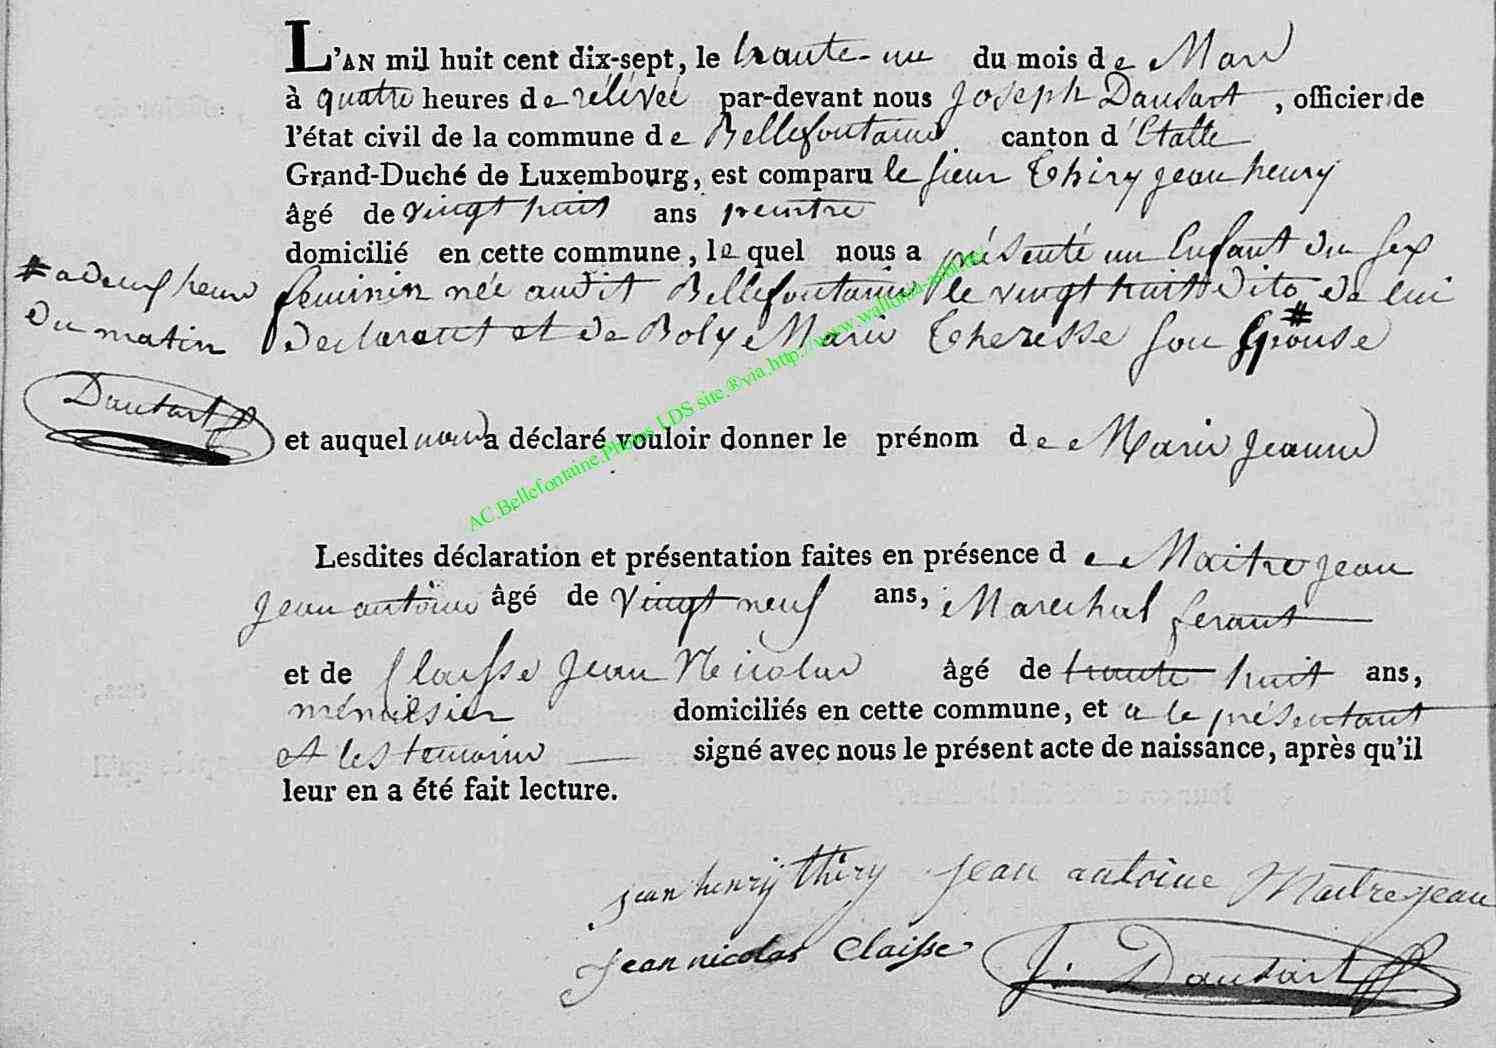 L'AN mil huit cent dix-sept, le trante-un du mois de Mars
à quatre heures de rélévée par-devant nous Joseph Dausart, officier de
l'état civil de la commune de Bellefontaine canton d'Etalle
Grand-Duché de Luxembourg, est comparu le sieur Thiry jean henry
âgé de vingt huit ans peintre
domicilié en cette commune, le quel nous a présenté un Enfant du sex
# a deux heurs feminin née audit Bellefontaine le vingt huit dito de lui
du matin declarant et de Boly Marie Theresse son Epouse #
Dausart
et auquel nous a déclaré vouloir donner le prénom de Marie jeanne
AC.Bellefontaine.Photos LDS site.®via.http://www.wallonia
Lesdites déclaration et présentation faites en présence de Maitrejean
jean antoine âgé de vingt neuf ans, Marechal ferant
et de Claisse jean Nicolas âgé de trante huit ans,
ménuisier domiciliés en cette commune, et a le présentant
et les temoins signé avec nous le présent acte de naissance, après qu'il
leur en a été fait lecture.
jean henrij thiry jean antoine Maitrejean
jean nicolas Claisse J. Dausart